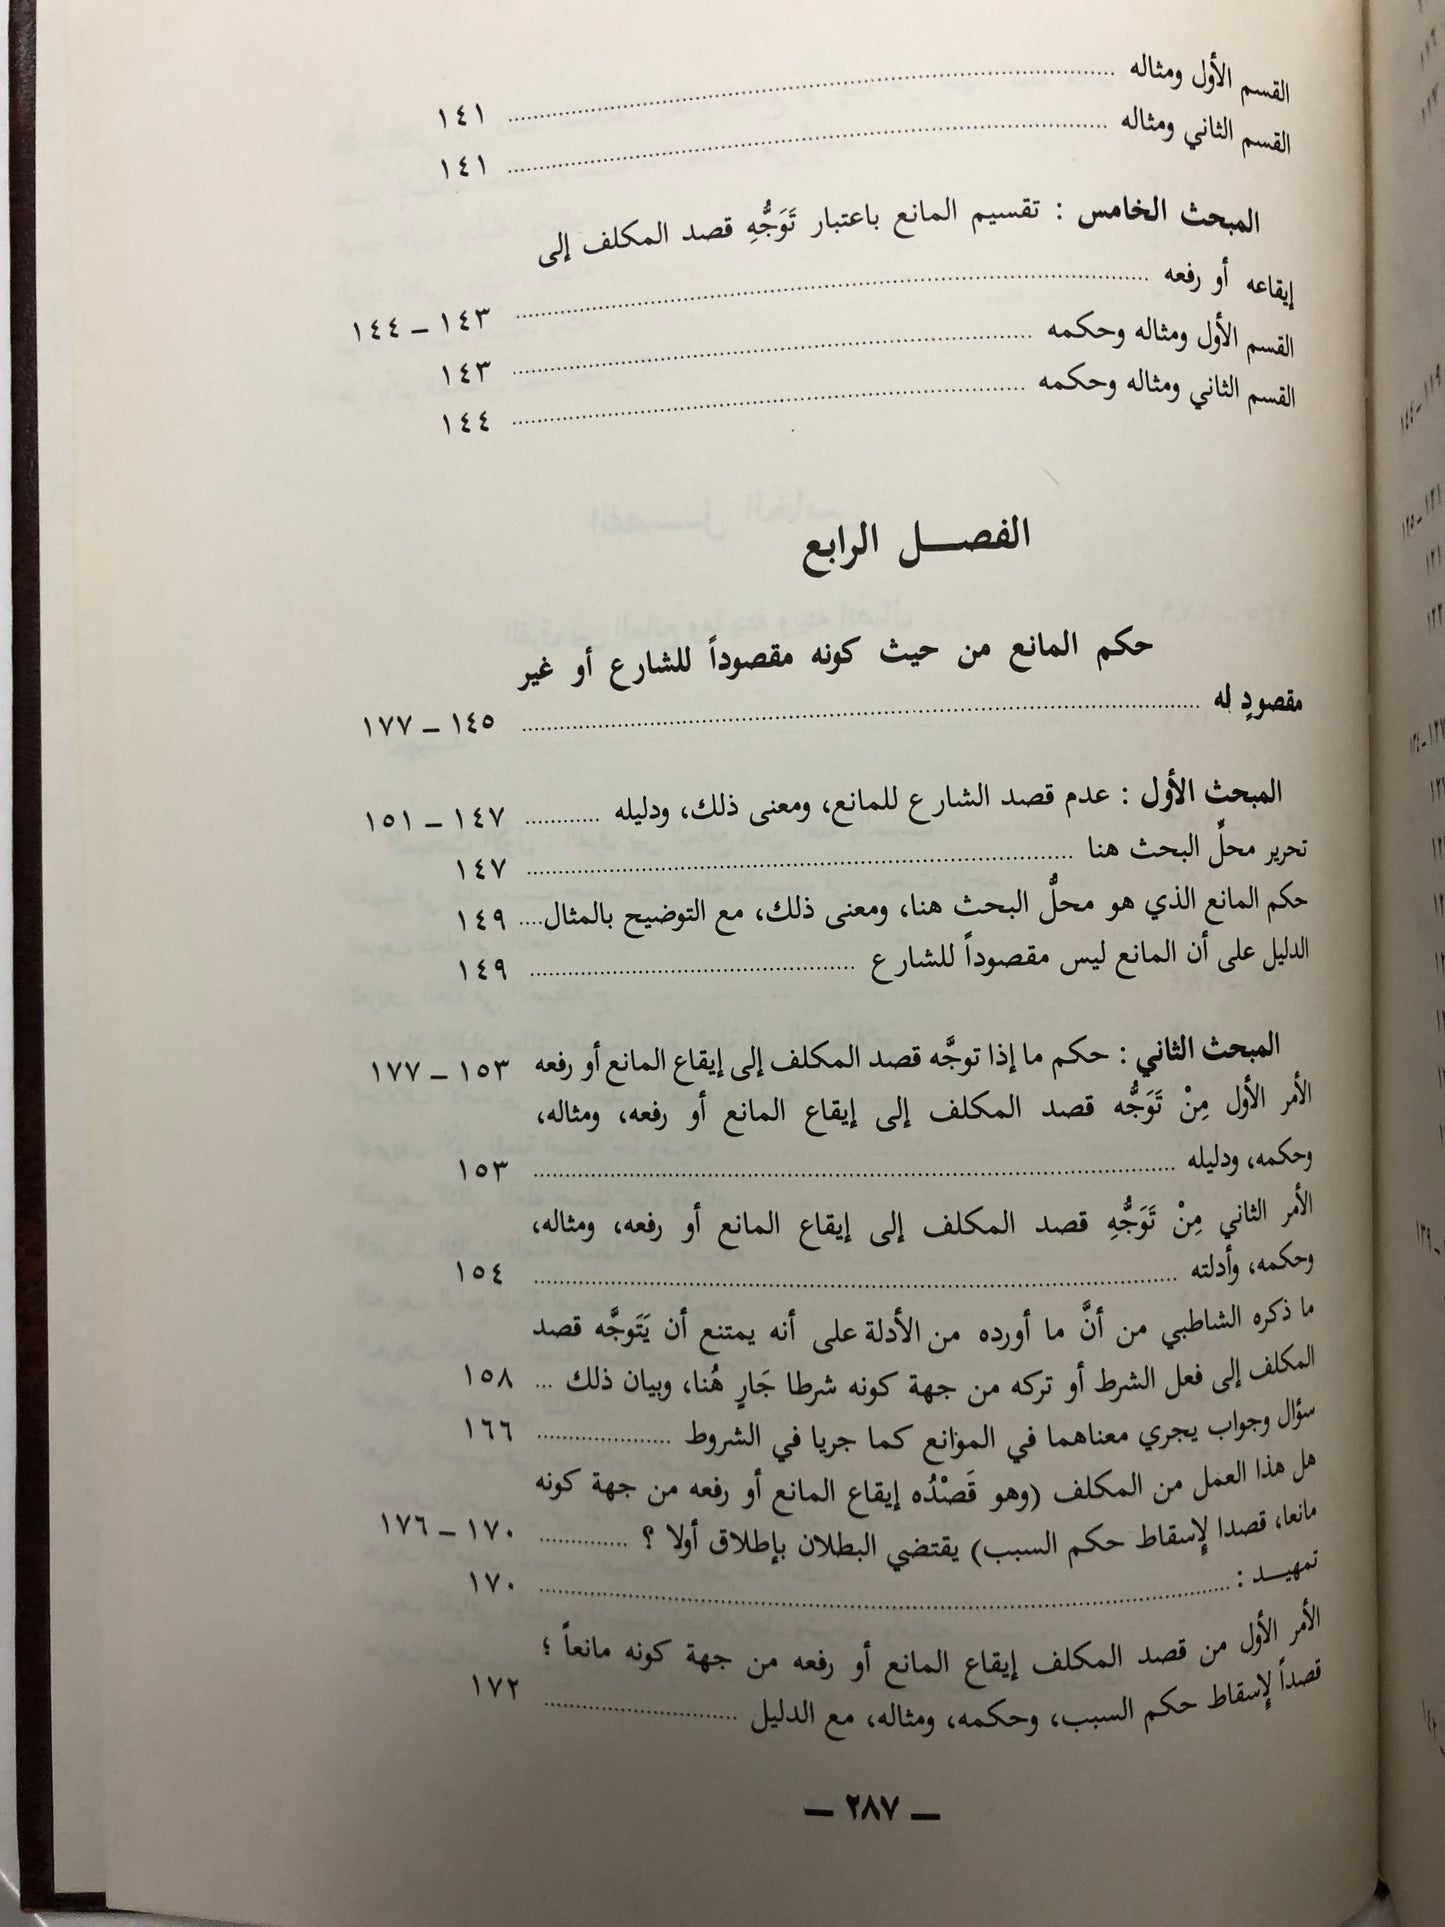 القسم الأول ومثاله ........................ ١٤١
القسم الثاني ومثاله ........................ ١٤١
المبحث الخامس : تقسيم المانع باعتبار تَوَجُّهِ قصد المكلف إلى
إيقاعه أو رفعه ........................ ١٤٣ – ١٤٤
القسم الأول ومثاله وحكمه ........................ ١٤٣
القسم الثاني ومثاله وحكمه ........................ ١٤٤
الفصـــل الرابع
حكم المانع من حيث كونه مقصوداً للشارع أو غير
مقصودٍ له ........................ ١٤٥ – ١٧٧
المبحث الأول : عدم قصد الشارع للمانع، ومعنى ذلك، ودليله ............ ١٤٧ – ١٥١
تحرير محلِّ البحث هنا ........................ ١٤٧
حكم المانع الذي هو محلُّ البحث هنا، ومعنى ذلك، مع التوضيح بالمثال.... ١٤٩
الدليل على أن المانع ليس مقصوداً للشارع ........................ ١٤٩
المبحث الثاني : حكم ما إذا توجَّه قصد المكلف إلى إيقاع المانع أو رفعه ١٥٣ – ١٧٧
الأمر الأول مِنْ تَوَجُّه قصد المكلف إلى إيقاع المانع أو رفعه، ومثاله،
وحكمه، ودليله ........................ ١٥٣
الأمر الثاني مِنْ تَوَجُّهِ قصد المكلف إلى إيقاع المانع أو رفعه، ومثاله،
وحكمه، وأدلته ........................ ١٥٤
ما ذكره الشاطبي من أنَّ ما أورده من الأدلة على أنه يمتنع أن يَتَوجَّه قصد
المكلف إلى فعل الشرط أو تركه من جهة كونه شرطا جَارٍ هُنا، وبيان ذلك ... ١٥٨
سؤال وجواب يجري معناهما في الموانع كما جريا في الشروط ..................... ١٦٦
هل هذا العمل من المكلف (وهو قَصْدُه إيقاع المانع أو رفعه من جهة كونه
مانعا، قصدا لإسقاط حكم السبب) يقتضي البطلان بإطلاق أولا ؟ .............. ١٧٠ – ١٧٦
تمهيــد : ........................ ١٧٠
الأمر الأول من قصد المكلف إيقاع المانع أو رفعه من جهة كونه مانعاً ؛
قصداً لإسقاط حكم السبب، وحكمه، ومثاله، مع الدليل ........................ ١٧٢
– ٢٨٧ –